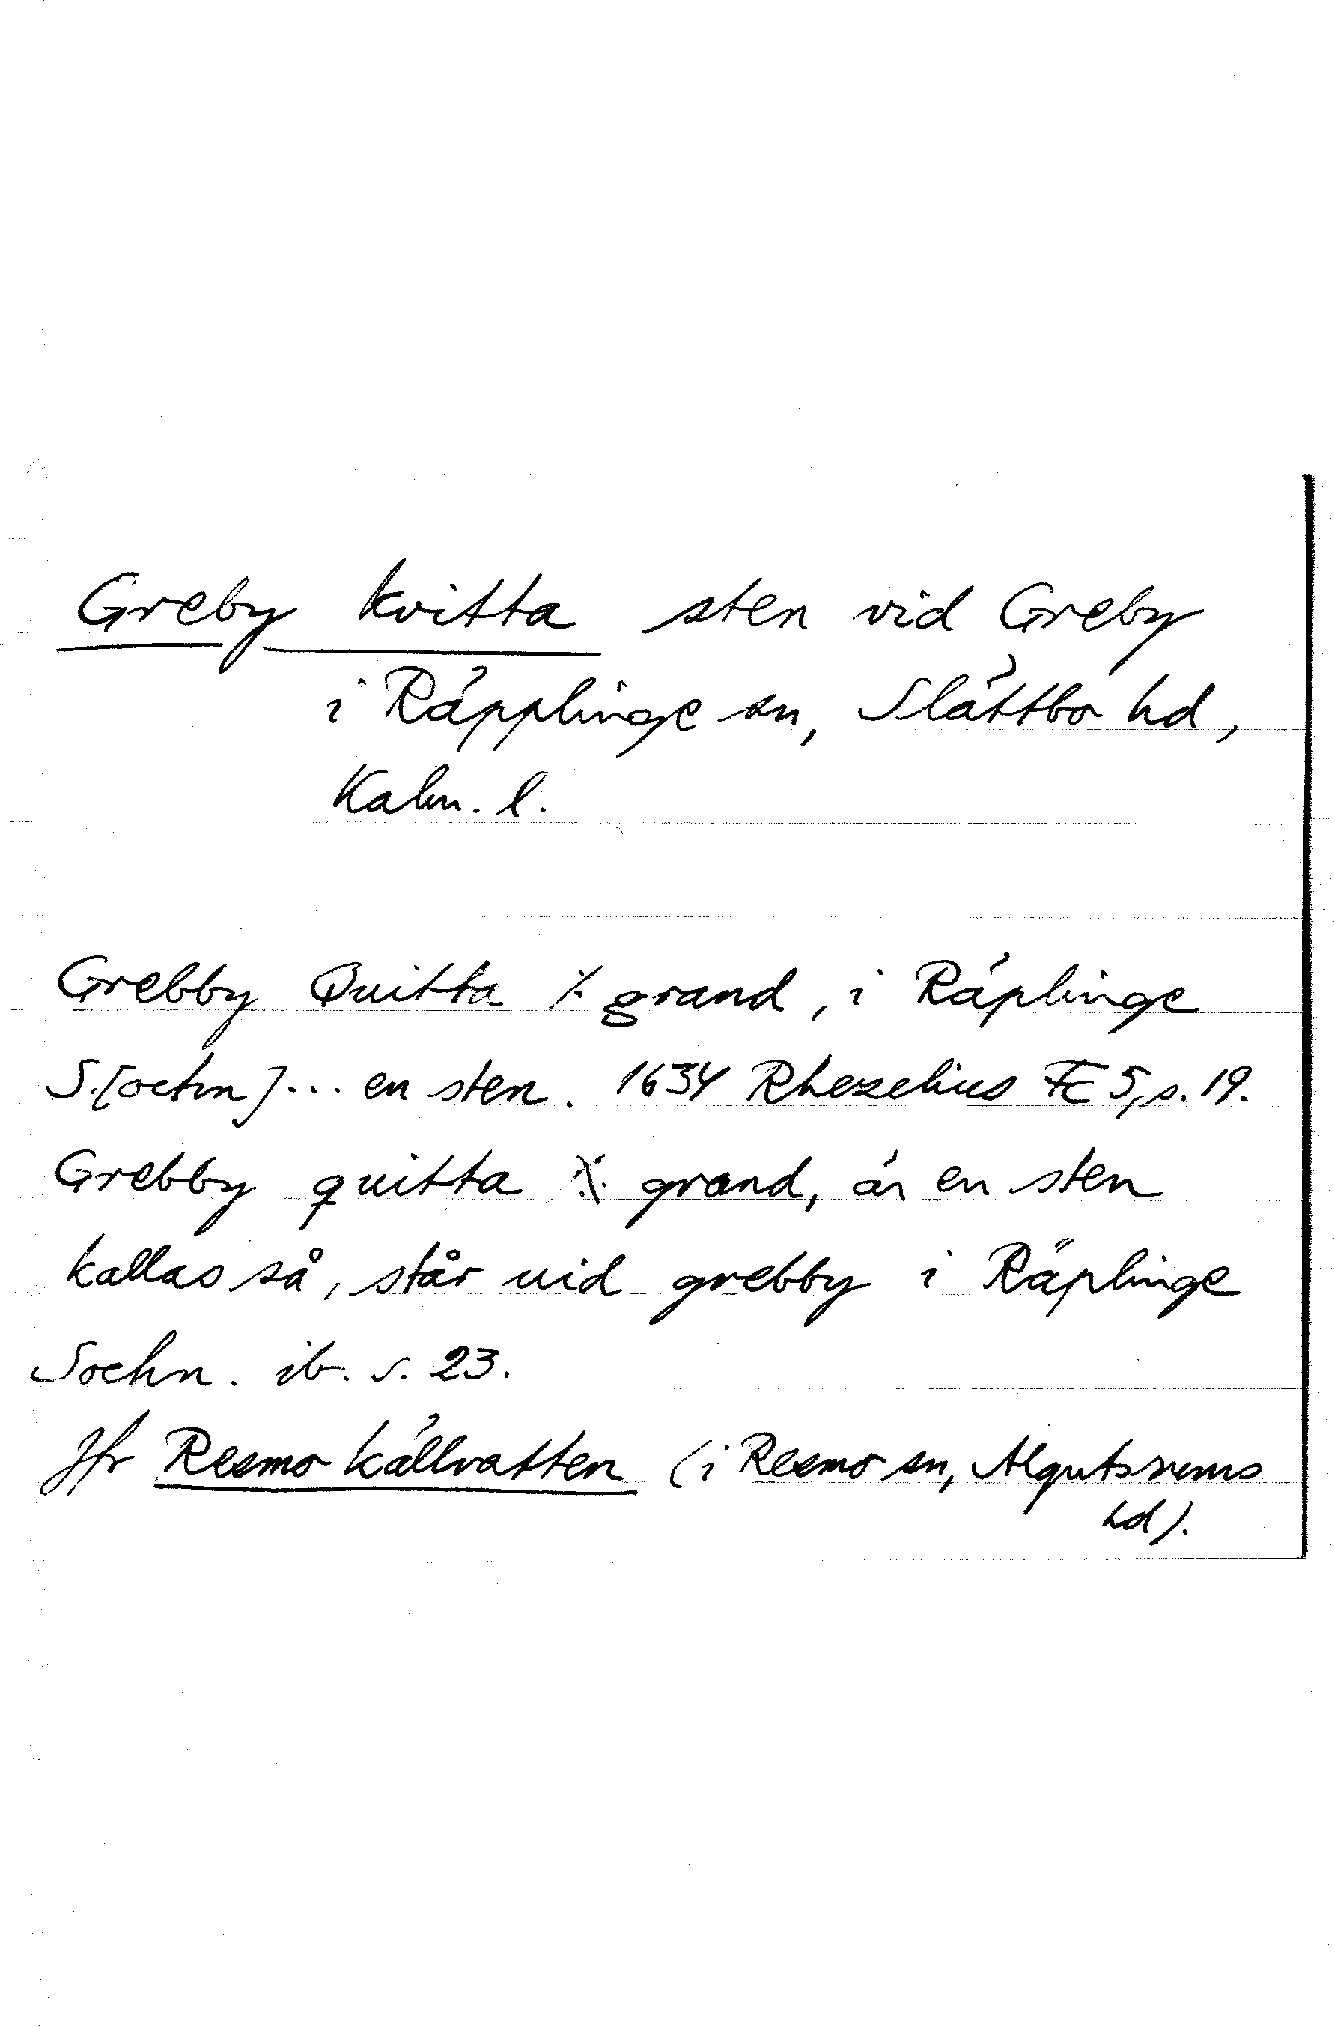 Greby kvitta sten vid Greby
i Räpplinge sn, Slättbo hd,
Kalm. l.
Grebby Quitta ⁒ grand, i Räplinge
S.[ochn]... en sten. 1634 Rhezelius Fc 5, s. 19.
Grebby quitta ⁒ grand, är en sten
kallas så, står uid grebby i Räplinge
Sochn. ib. s. 23.
Jfr Resmo källvatten (i Resmo sn, Algutsrums
hd).